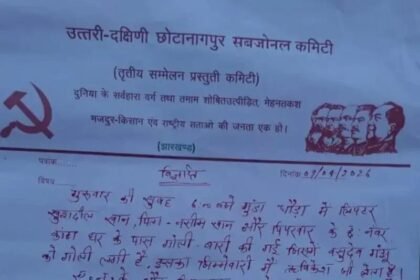 उत्तरी-दक्षिणी छोटानागपुर सबजोनल कमिटी
(तृतीय सम्मेलन प्रस्तुती कमिटी)
दुनिया के सर्वहारा वर्ग तथा तमाम शोषितउत्पीड़ित, मेहनतकश
मजदुर-किसान एवं राष्ट्रीय सताओ की जनता एक हो।
(झारखण्ड)
पत्रांक
दिनांक 09/04/2026
विषय विज्ञप्ति
गुरुवार की सुबह 6 बजे में
खान, पिता - नसीम खान और पिपरवार के 6 नंबर
कांटा घर के पास गोली - बारी की गई जिसमें वसुदेव गंझु
को गोली लगी है, इसका जिम्मेवारी मैं